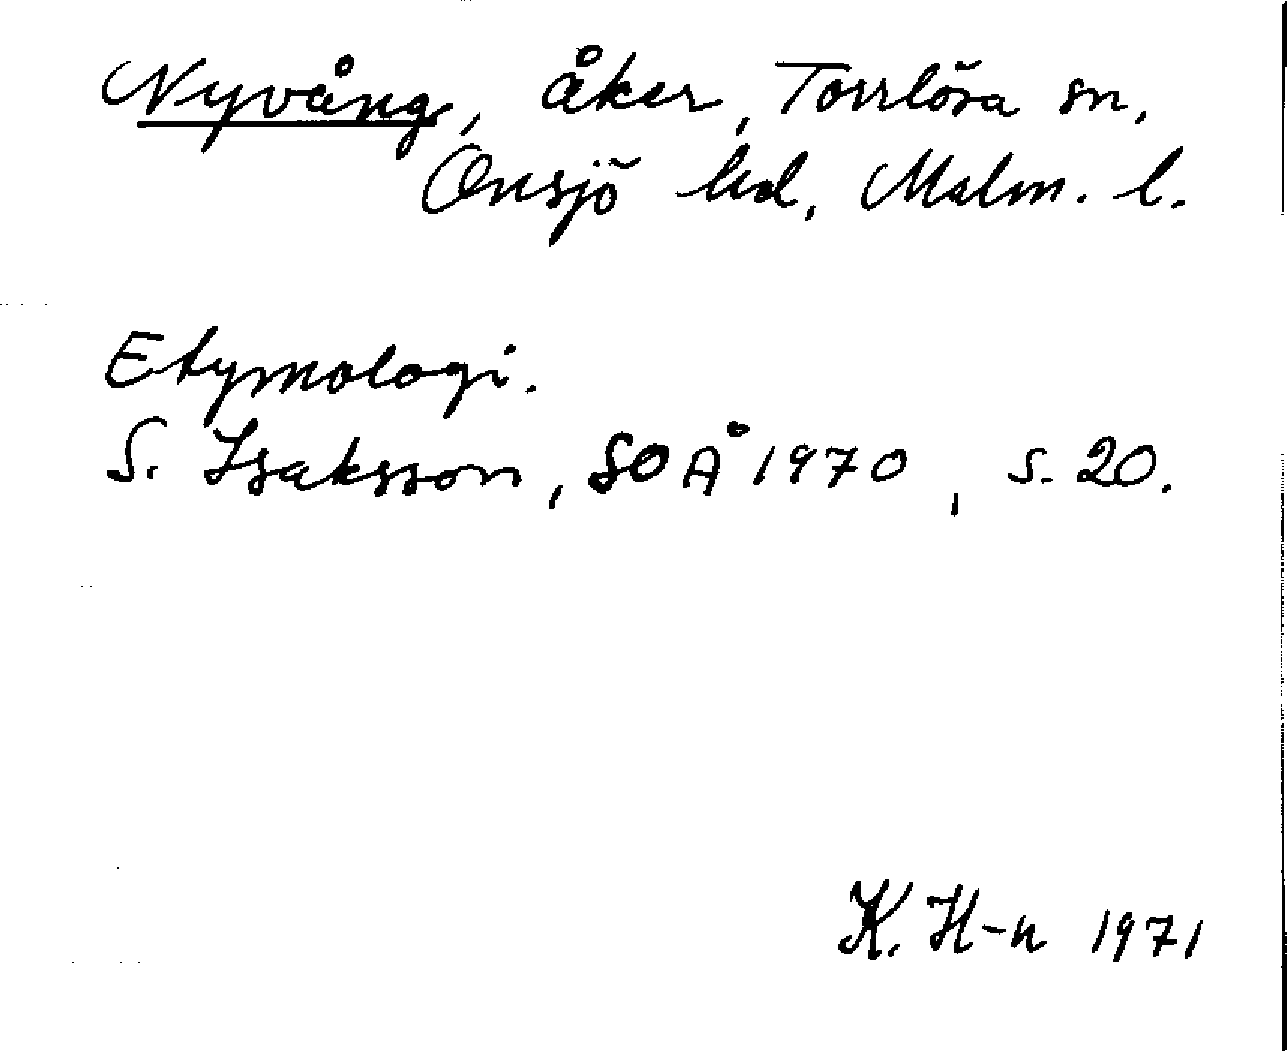 Nyvång, åker, Torrlösa sn,
Onsjö hd, Malm. l.
Etymologi.
S. Isaksson, SOÅ 1970, s. 20.
K. H-n 1971